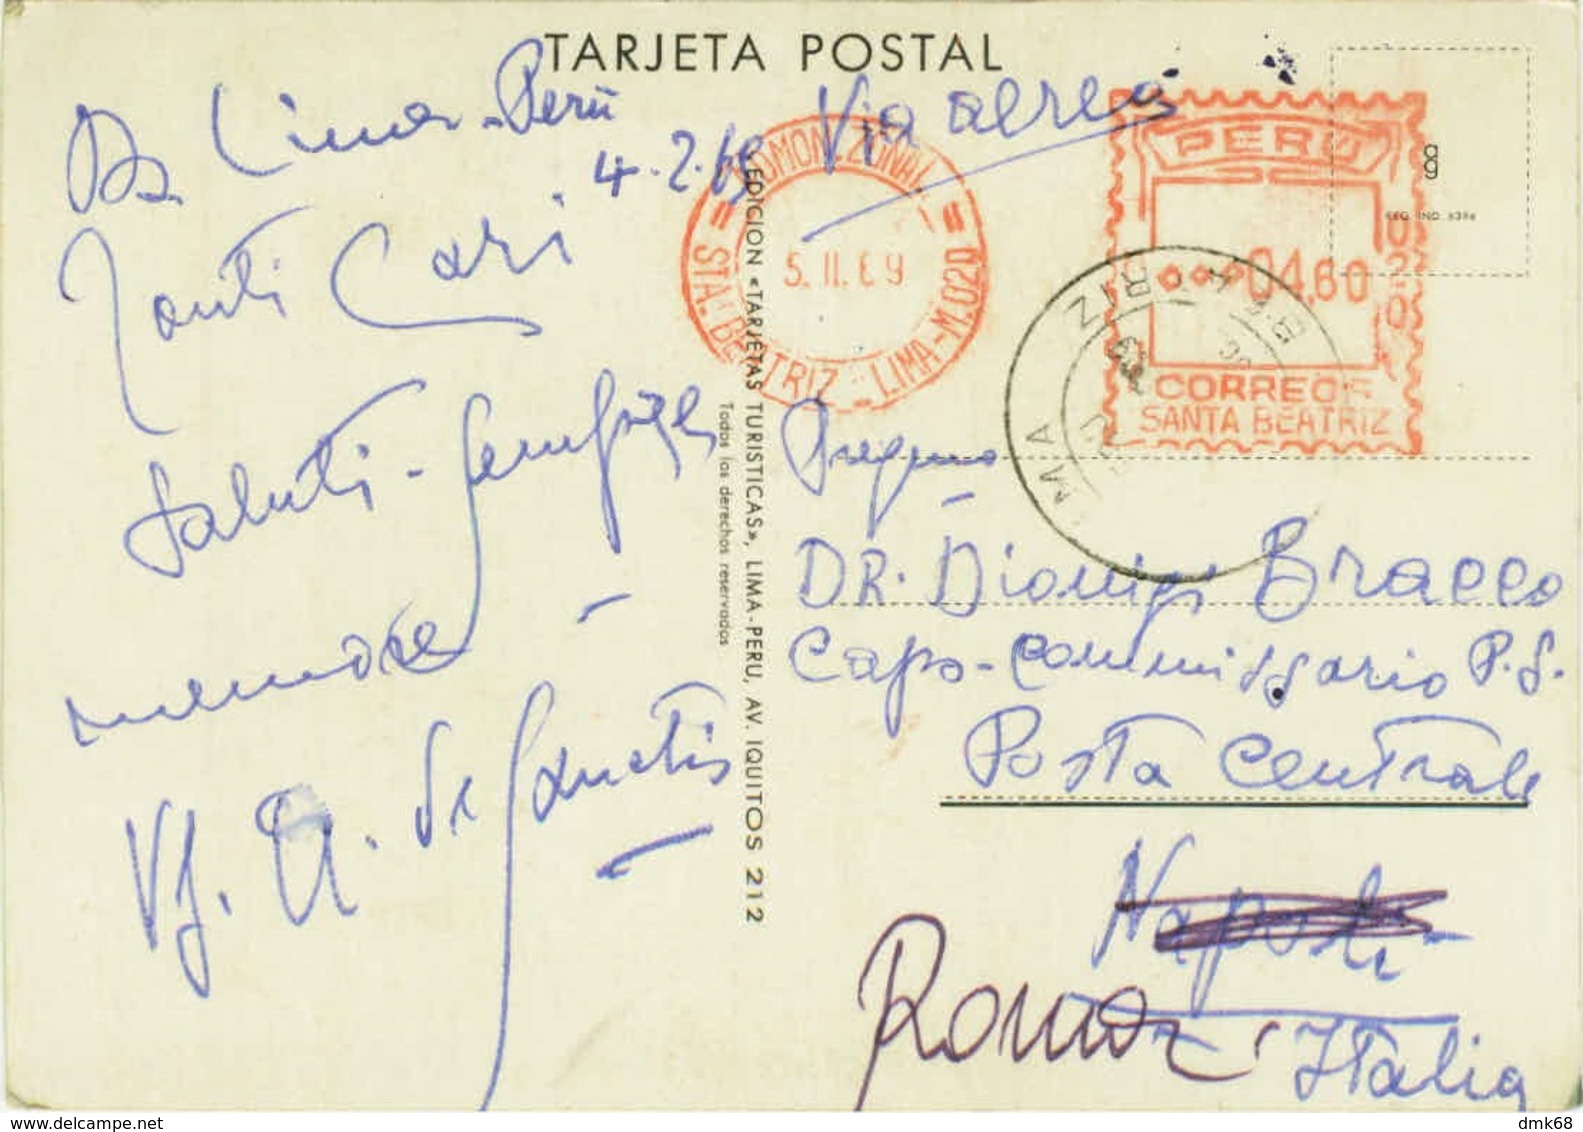 TARJETA POSTAL
Da Lima - Perù
4.2.69
Via aerea
Tanti Cari
Saluti - Sempre
memore
A. de Sanctis
PERU
04,60
CORREOS
SANTA BEATRIZ
REG. IND. 6396
5.II.69
STA. BEATRIZ - LIMA - M.020
EDICION «TARJETAS TURISTICAS», LIMA - PERU, AV. IQUITOS 212
Todos los derechos reservados
Pregmo
DR. Dionigi Bracco
Capo-Commissario P.S.
Posta Centrale
Napoli
Roma
Italia
delcampe.net
dmk68